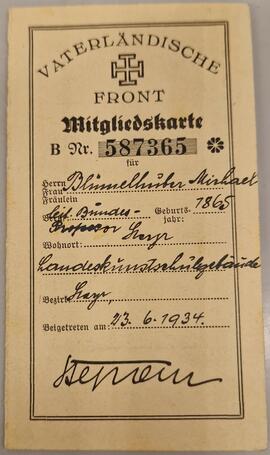 VATERLÄNDISCHE
FRONT
Mitgliedskarte
B Nr. 587365
für
Herrn
Frau Blümelhuber Michael
Fräulein
Bundes- Geburts- 1865
Professor Steyr jahr:
Wohnort:
Landeskunstschulgebäude
Bezirk: Steyr
Beigetreten am: 23.6.1934.